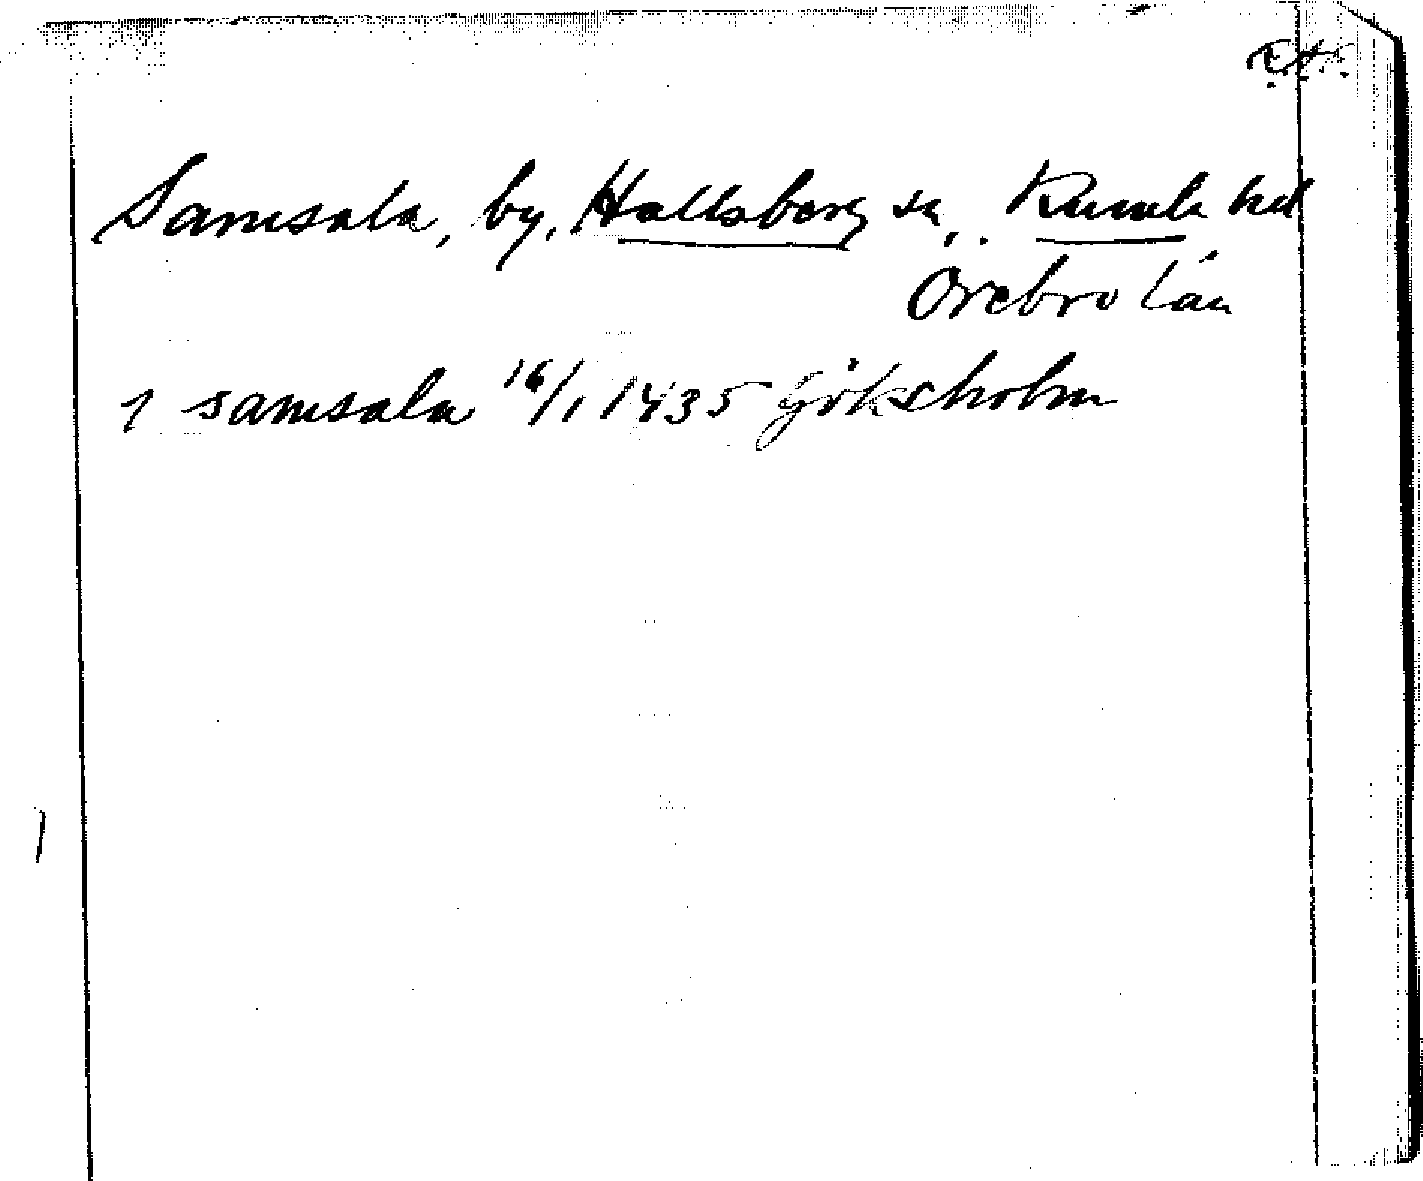 Samsala, by, Hallsberg sn, Kumla hd
Örebro län
1 samsala 16/1 1435 Gökscholm